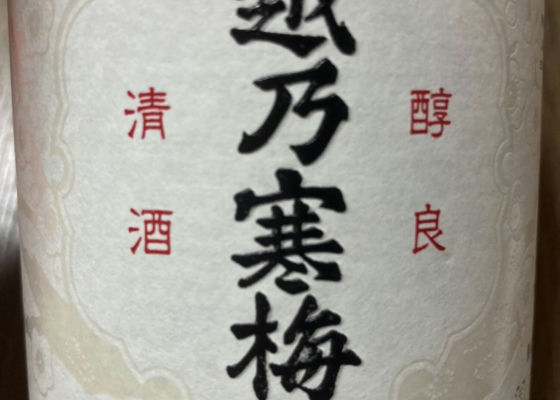 醇良
越乃寒梅
清酒